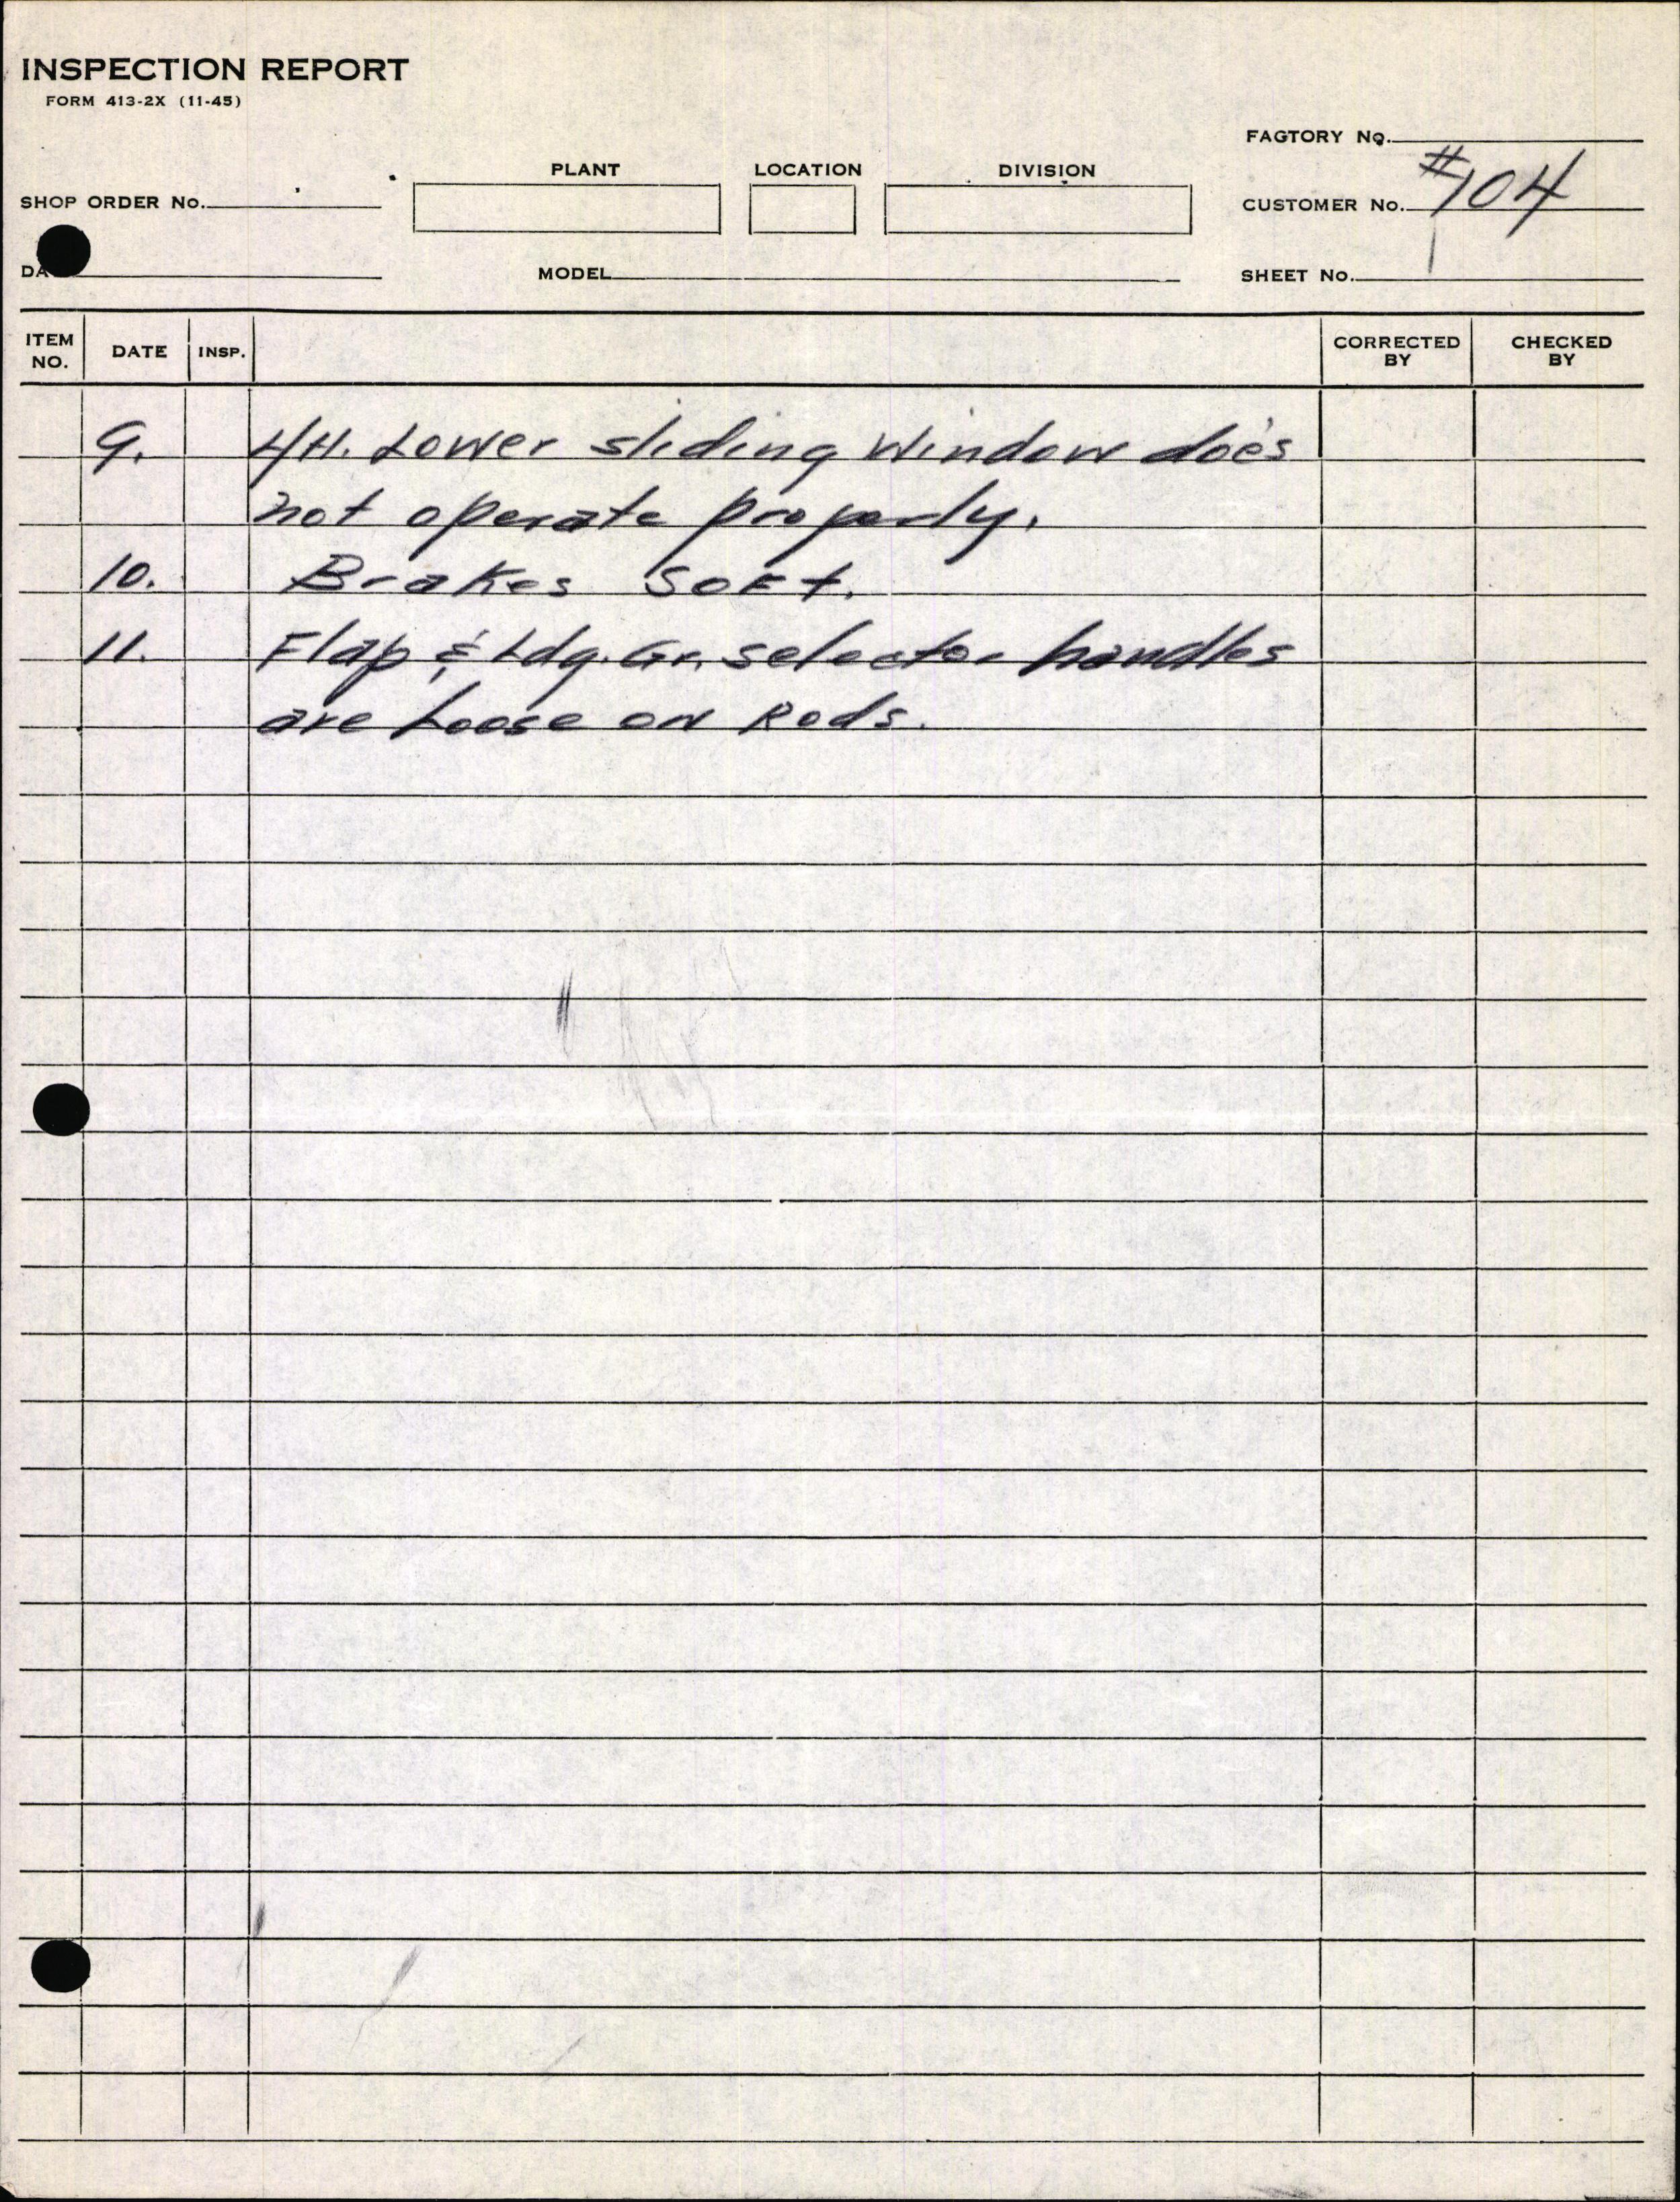 INSPECTION REPORT
FORM 413-2X (11-45)
FAGTORY No.
PLANT LOCATION DIVISION
SHOP ORDER No. CUSTOMER No. #104
DA MODEL SHEET No.
ITEM NO. DATE INSP. CORRECTED BY CHECKED BY
9. L/H. Lower sliding Window does
not operate properly.
10. Brakes Soft.
11. Flap & Ldg. Gr. selector handles
are Loose on Rods.